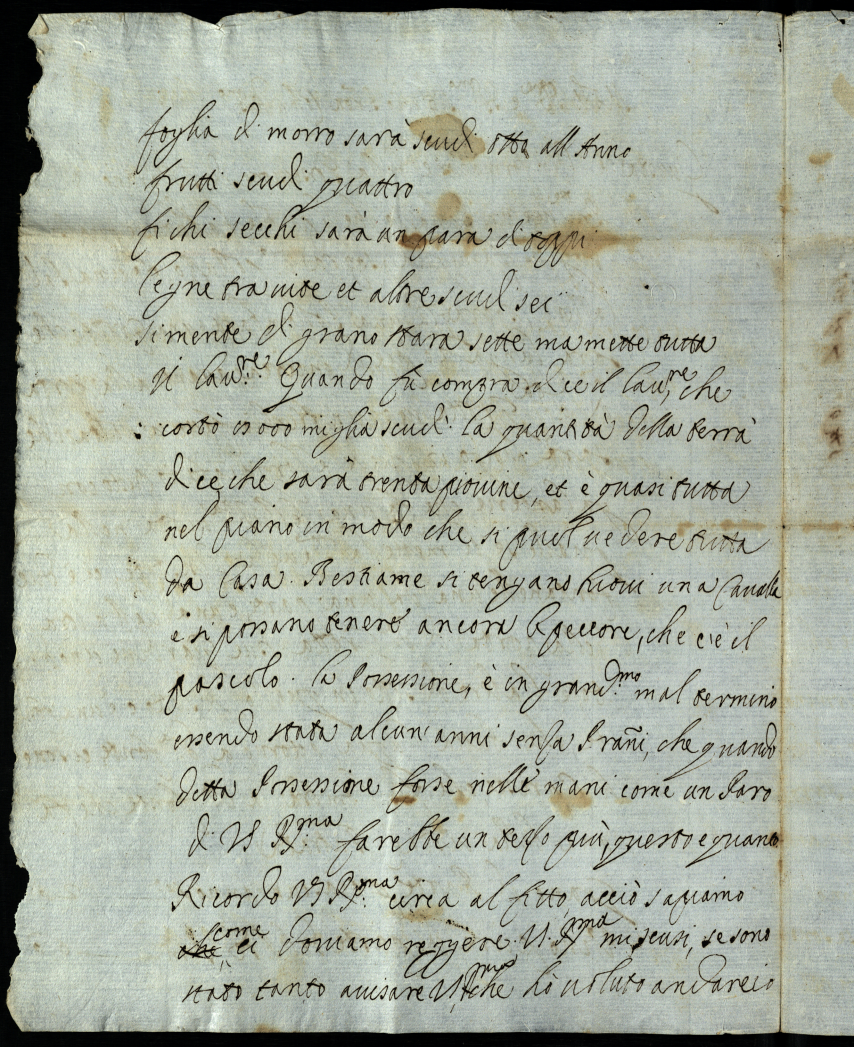 foglia di morro sarà scudi otto all Anno
frutti scudi quattro
fichi secchi sarà un para d
legne tra uite et altre scudi sei
simente di grano stara sette ma mette tutta
il lau:re Quando fù compra dice il lau:re che
costò miglia scudi la quantità della terra
dice che sarà trenta piouine, et è quasi tutta
nel piano in modo che si puol uedere tutta
da Casa. Bestiame si tengano una Caualla
e si possano tenere ancora le peccore, che c'è il
pascolo. la Possessione, è in grand:mo mal termino
essendo stata alcun'anni senza, che quando
detta Possessione fosse nelle mani come un Paro
di VS R:ma farebbe un terzo più, questo e quanto
Ricordo VS R:ma circa al fitto acciò sapiamo
come ci douiamo reggere. V.S. R:ma mi scusi, se sono
stato tanto auisare che hò uoluto andarcio